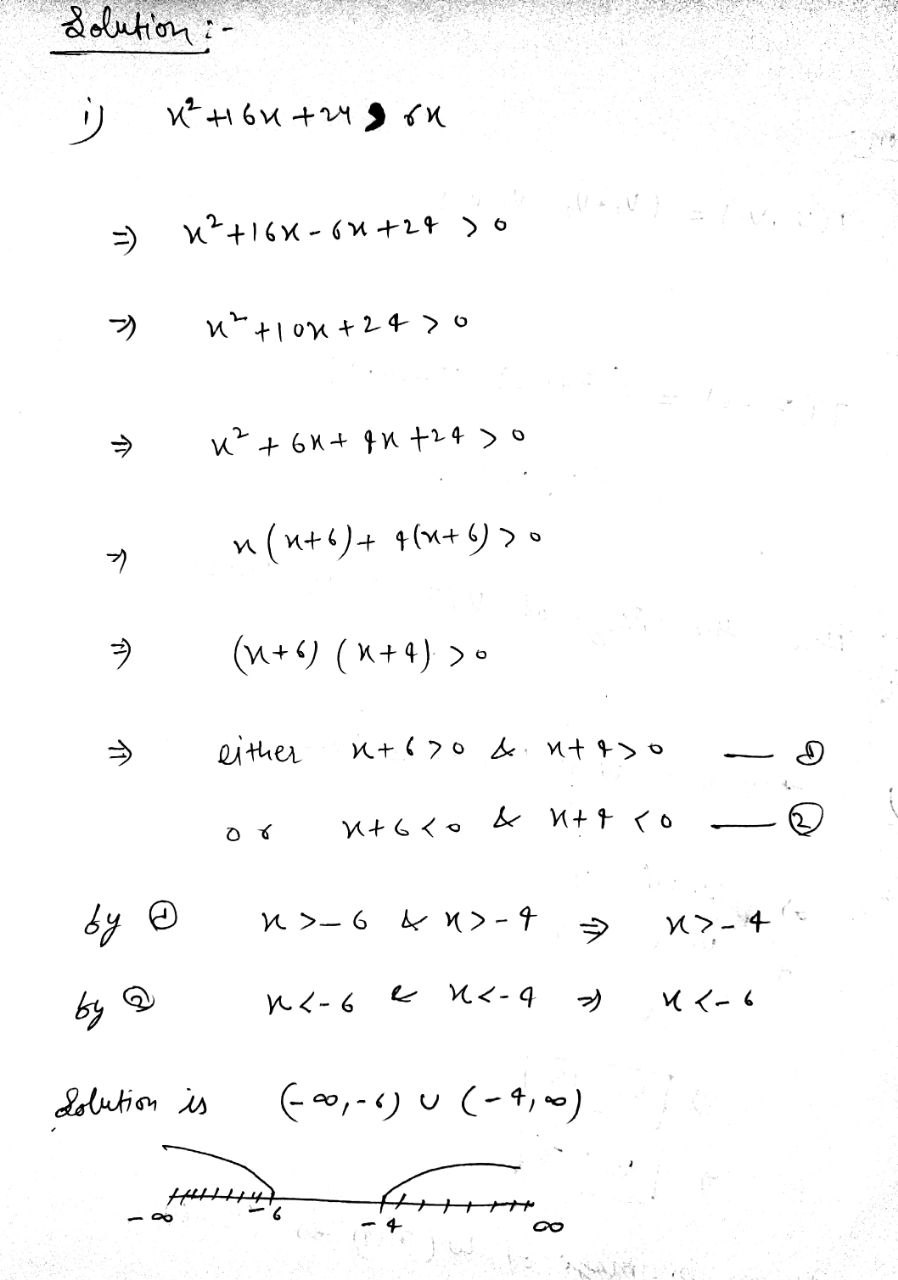 Solution :-
i) x² + 16x + 24 > 6x
⇒ x² + 16x - 6x + 24 > 0
⇒ x² + 10x + 24 > 0
⇒ x² + 6x + 4x + 24 > 0
⇒ x(x+6) + 4(x+6) > 0
⇒ (x+6) (x+4) > 0
⇒ either x+6>0 & x+4>0 — ①
or x+6<0 & x+4<0 — ②
by ① x>-6 & x>-4 ⇒ x>-4
by ② x<-6 & x<-4 ⇒ x<-6
Solution is (-∞,-6) ∪ (-4,∞)
-∞ -6 -4 ∞